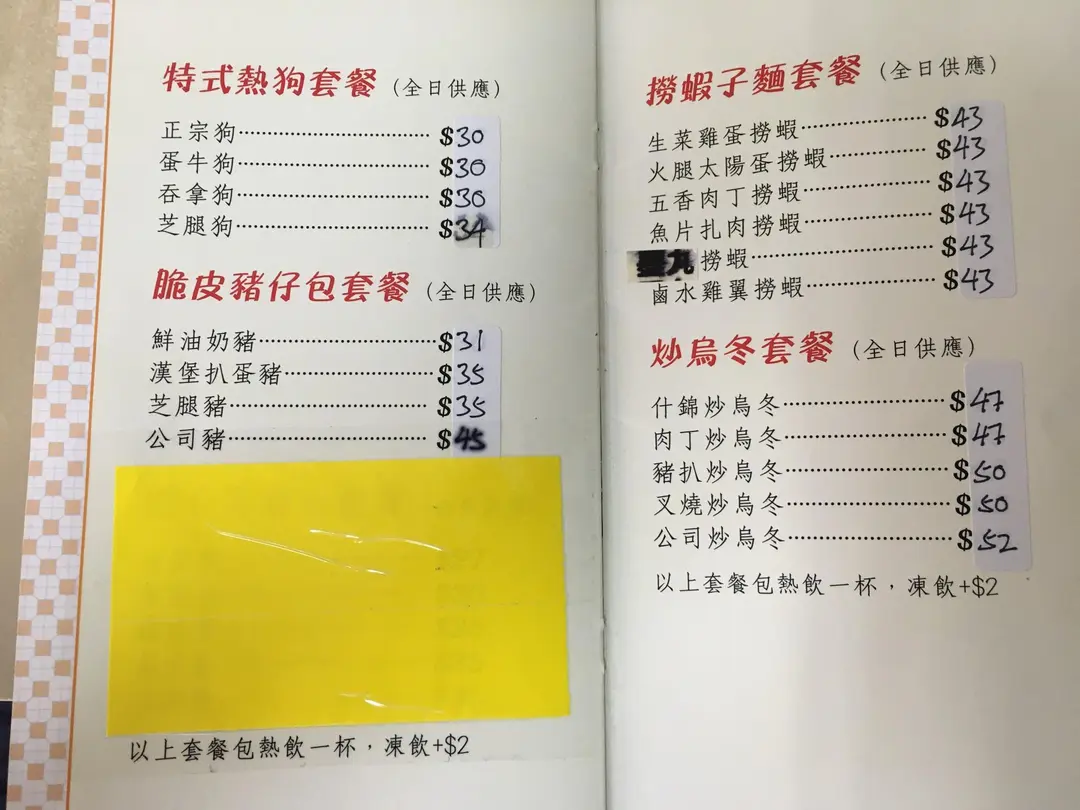 特式熱狗套餐 (全日供應)
正宗狗 $30
蛋牛狗 $30
吞拿狗 $30
芝腿狗 $34
脆皮豬仔包套餐 (全日供應)
鮮油奶豬 $31
漢堡扒蛋豬 $35
芝腿豬 $35
公司豬 $45
以上套餐包熱飲一杯，凍飲+$2
撈蝦子麵套餐 (全日供應)
生菜雞蛋撈蝦 $43
火腿太陽蛋撈蝦 $43
五香肉丁撈蝦 $43
魚片扎肉撈蝦 $43
丸撈蝦 $43
鹵水雞翼撈蝦 $43
炒烏冬套餐 (全日供應)
什錦炒烏冬 $47
肉丁炒烏冬 $47
豬扒炒烏冬 $50
叉燒炒烏冬 $50
公司炒烏冬 $52
以上套餐包熱飲一杯，凍飲+$2